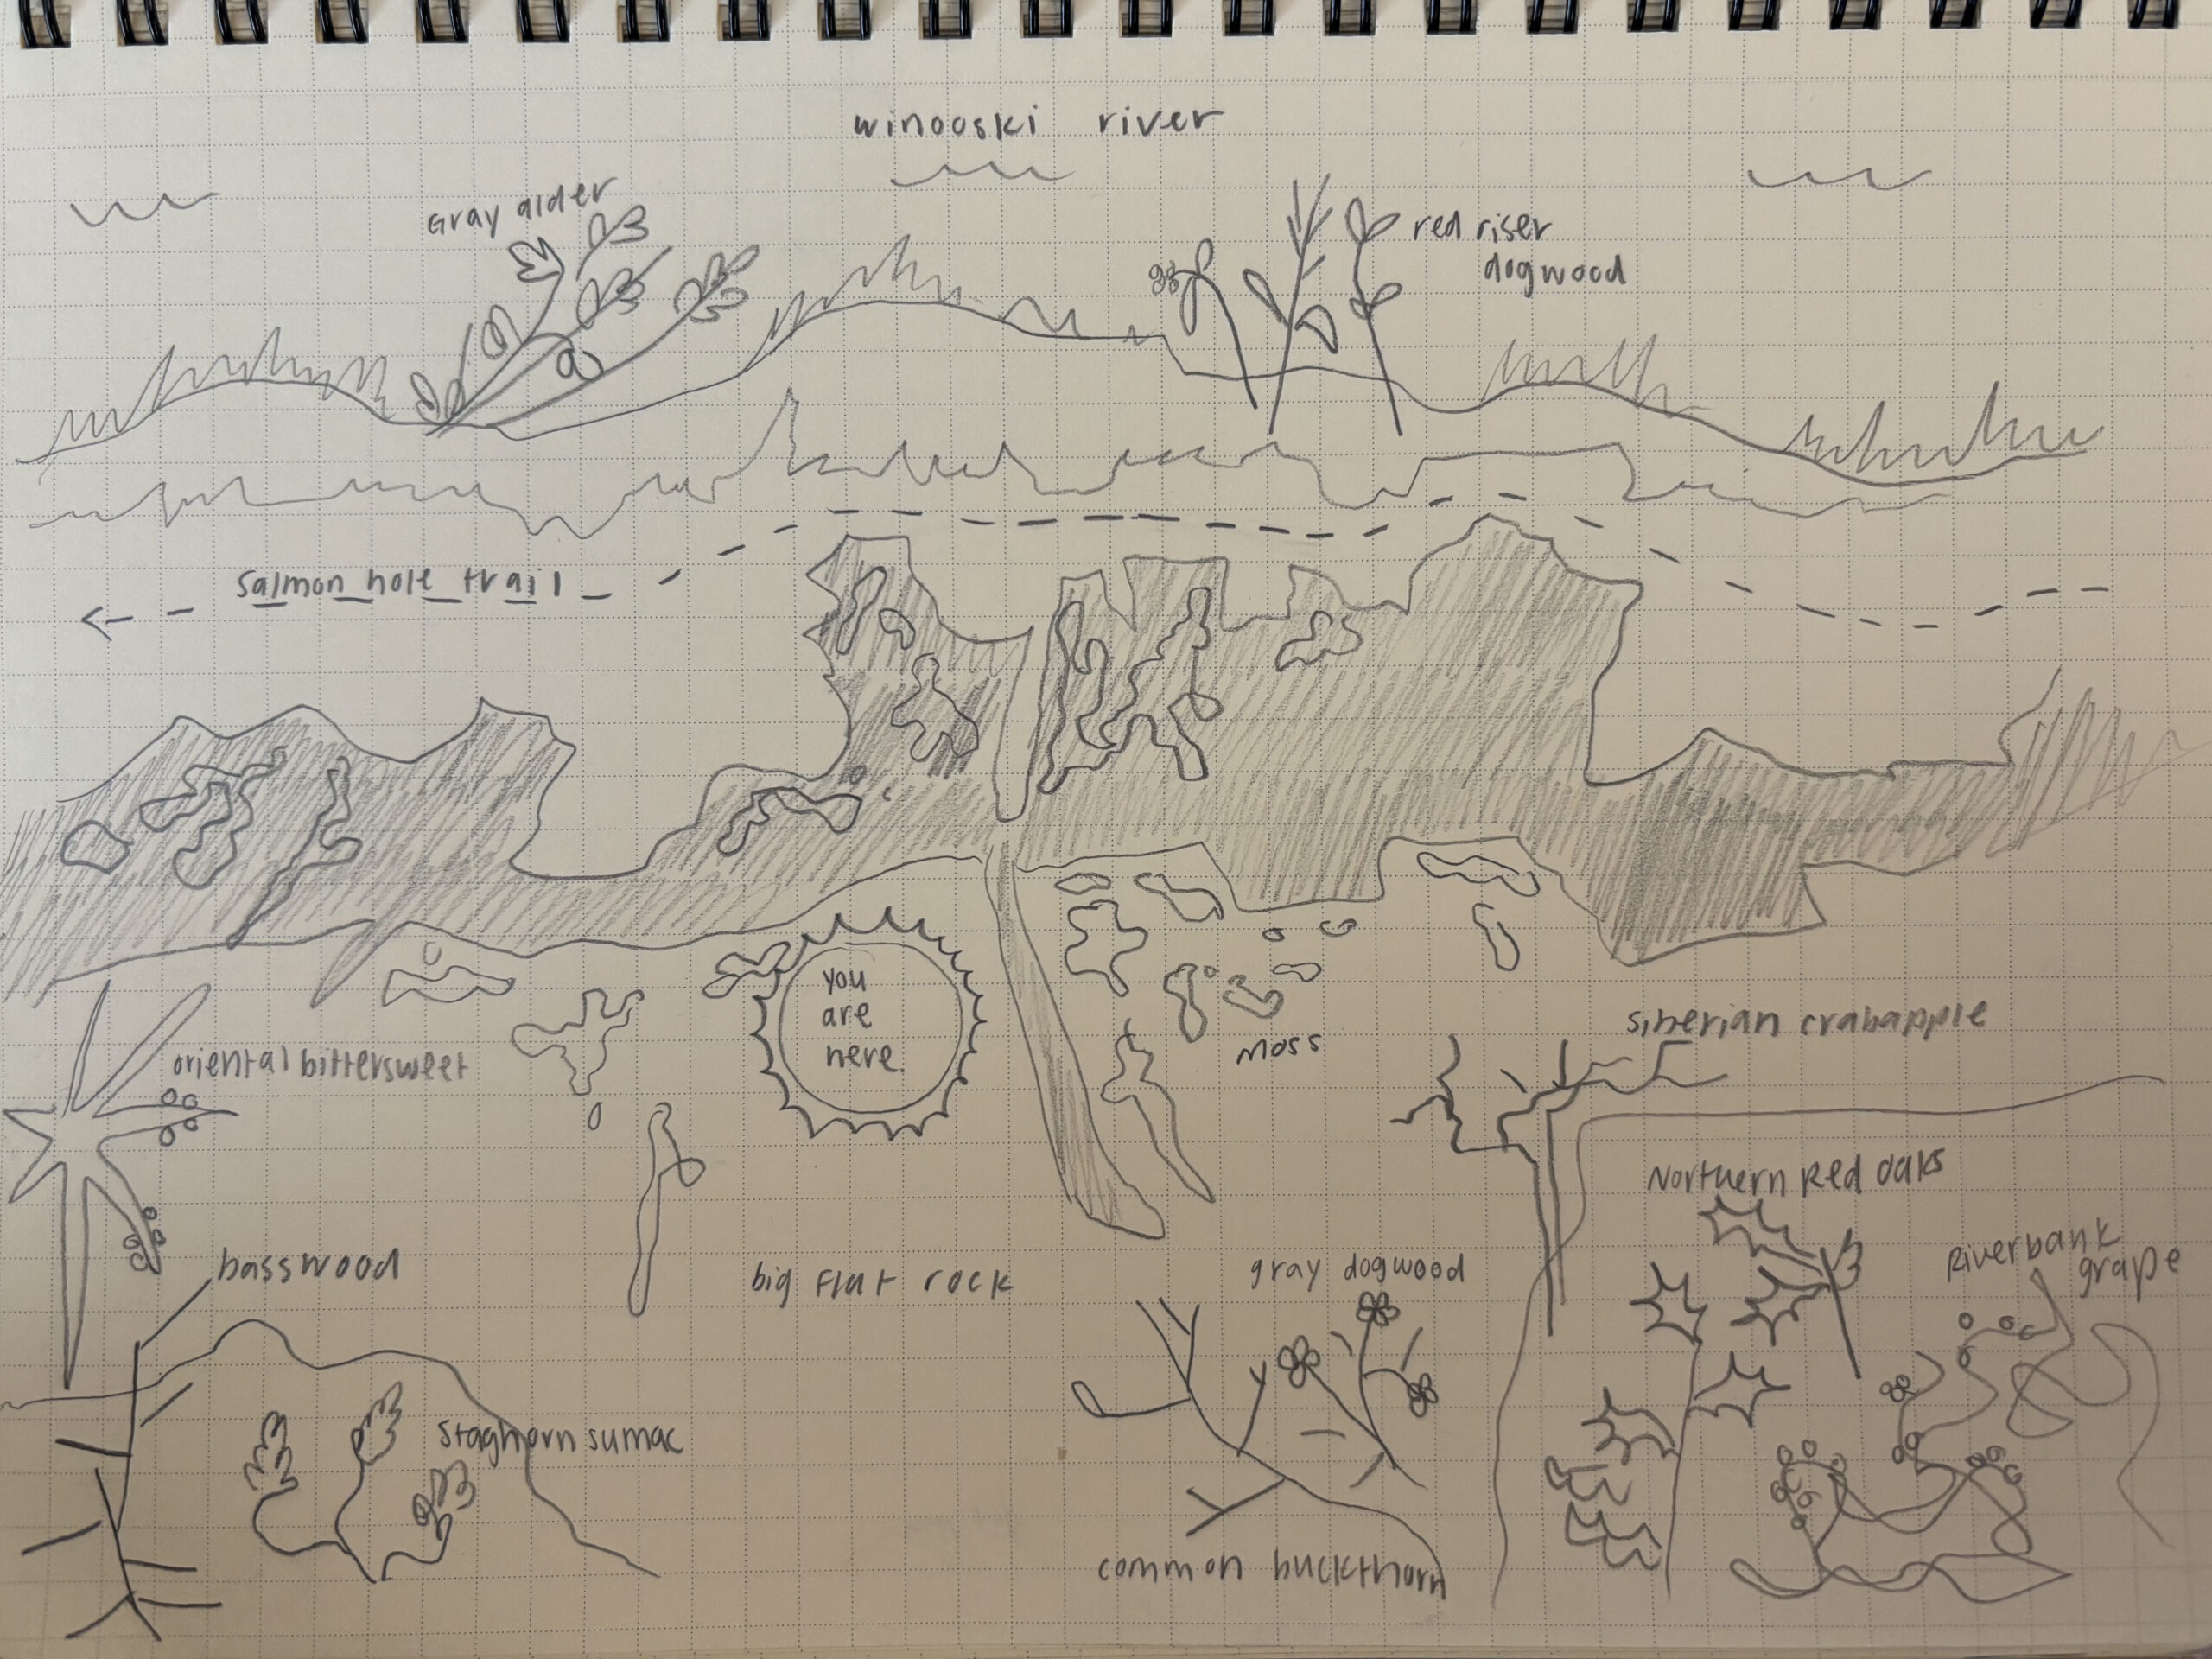 winooski river
Gray alder
red riser
dogwood
salmon hole trail
you
are
here.
moss
siberian crabapple
oriental bittersweet
Northern Red Oaks
Riverbank
grape
basswood
big flat rock
gray dogwood
staghorn sumac
common buckthorn